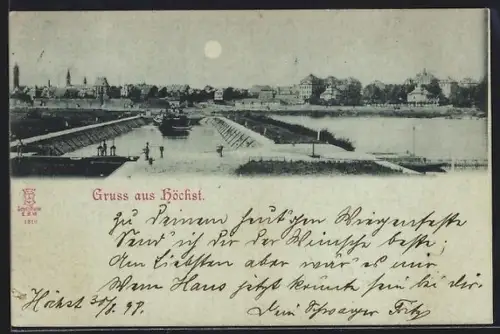 Gruss aus Höchst.
1810
Zu Deinem heut'gen Wiegenfeste
Send' ich dir der Wünsche beste;
Am Liebsten aber wär' es mir
Wenn Hans jetzt könnte sein bei dir.
Höchst 30/8. 97.
Dein Schwager Fritz